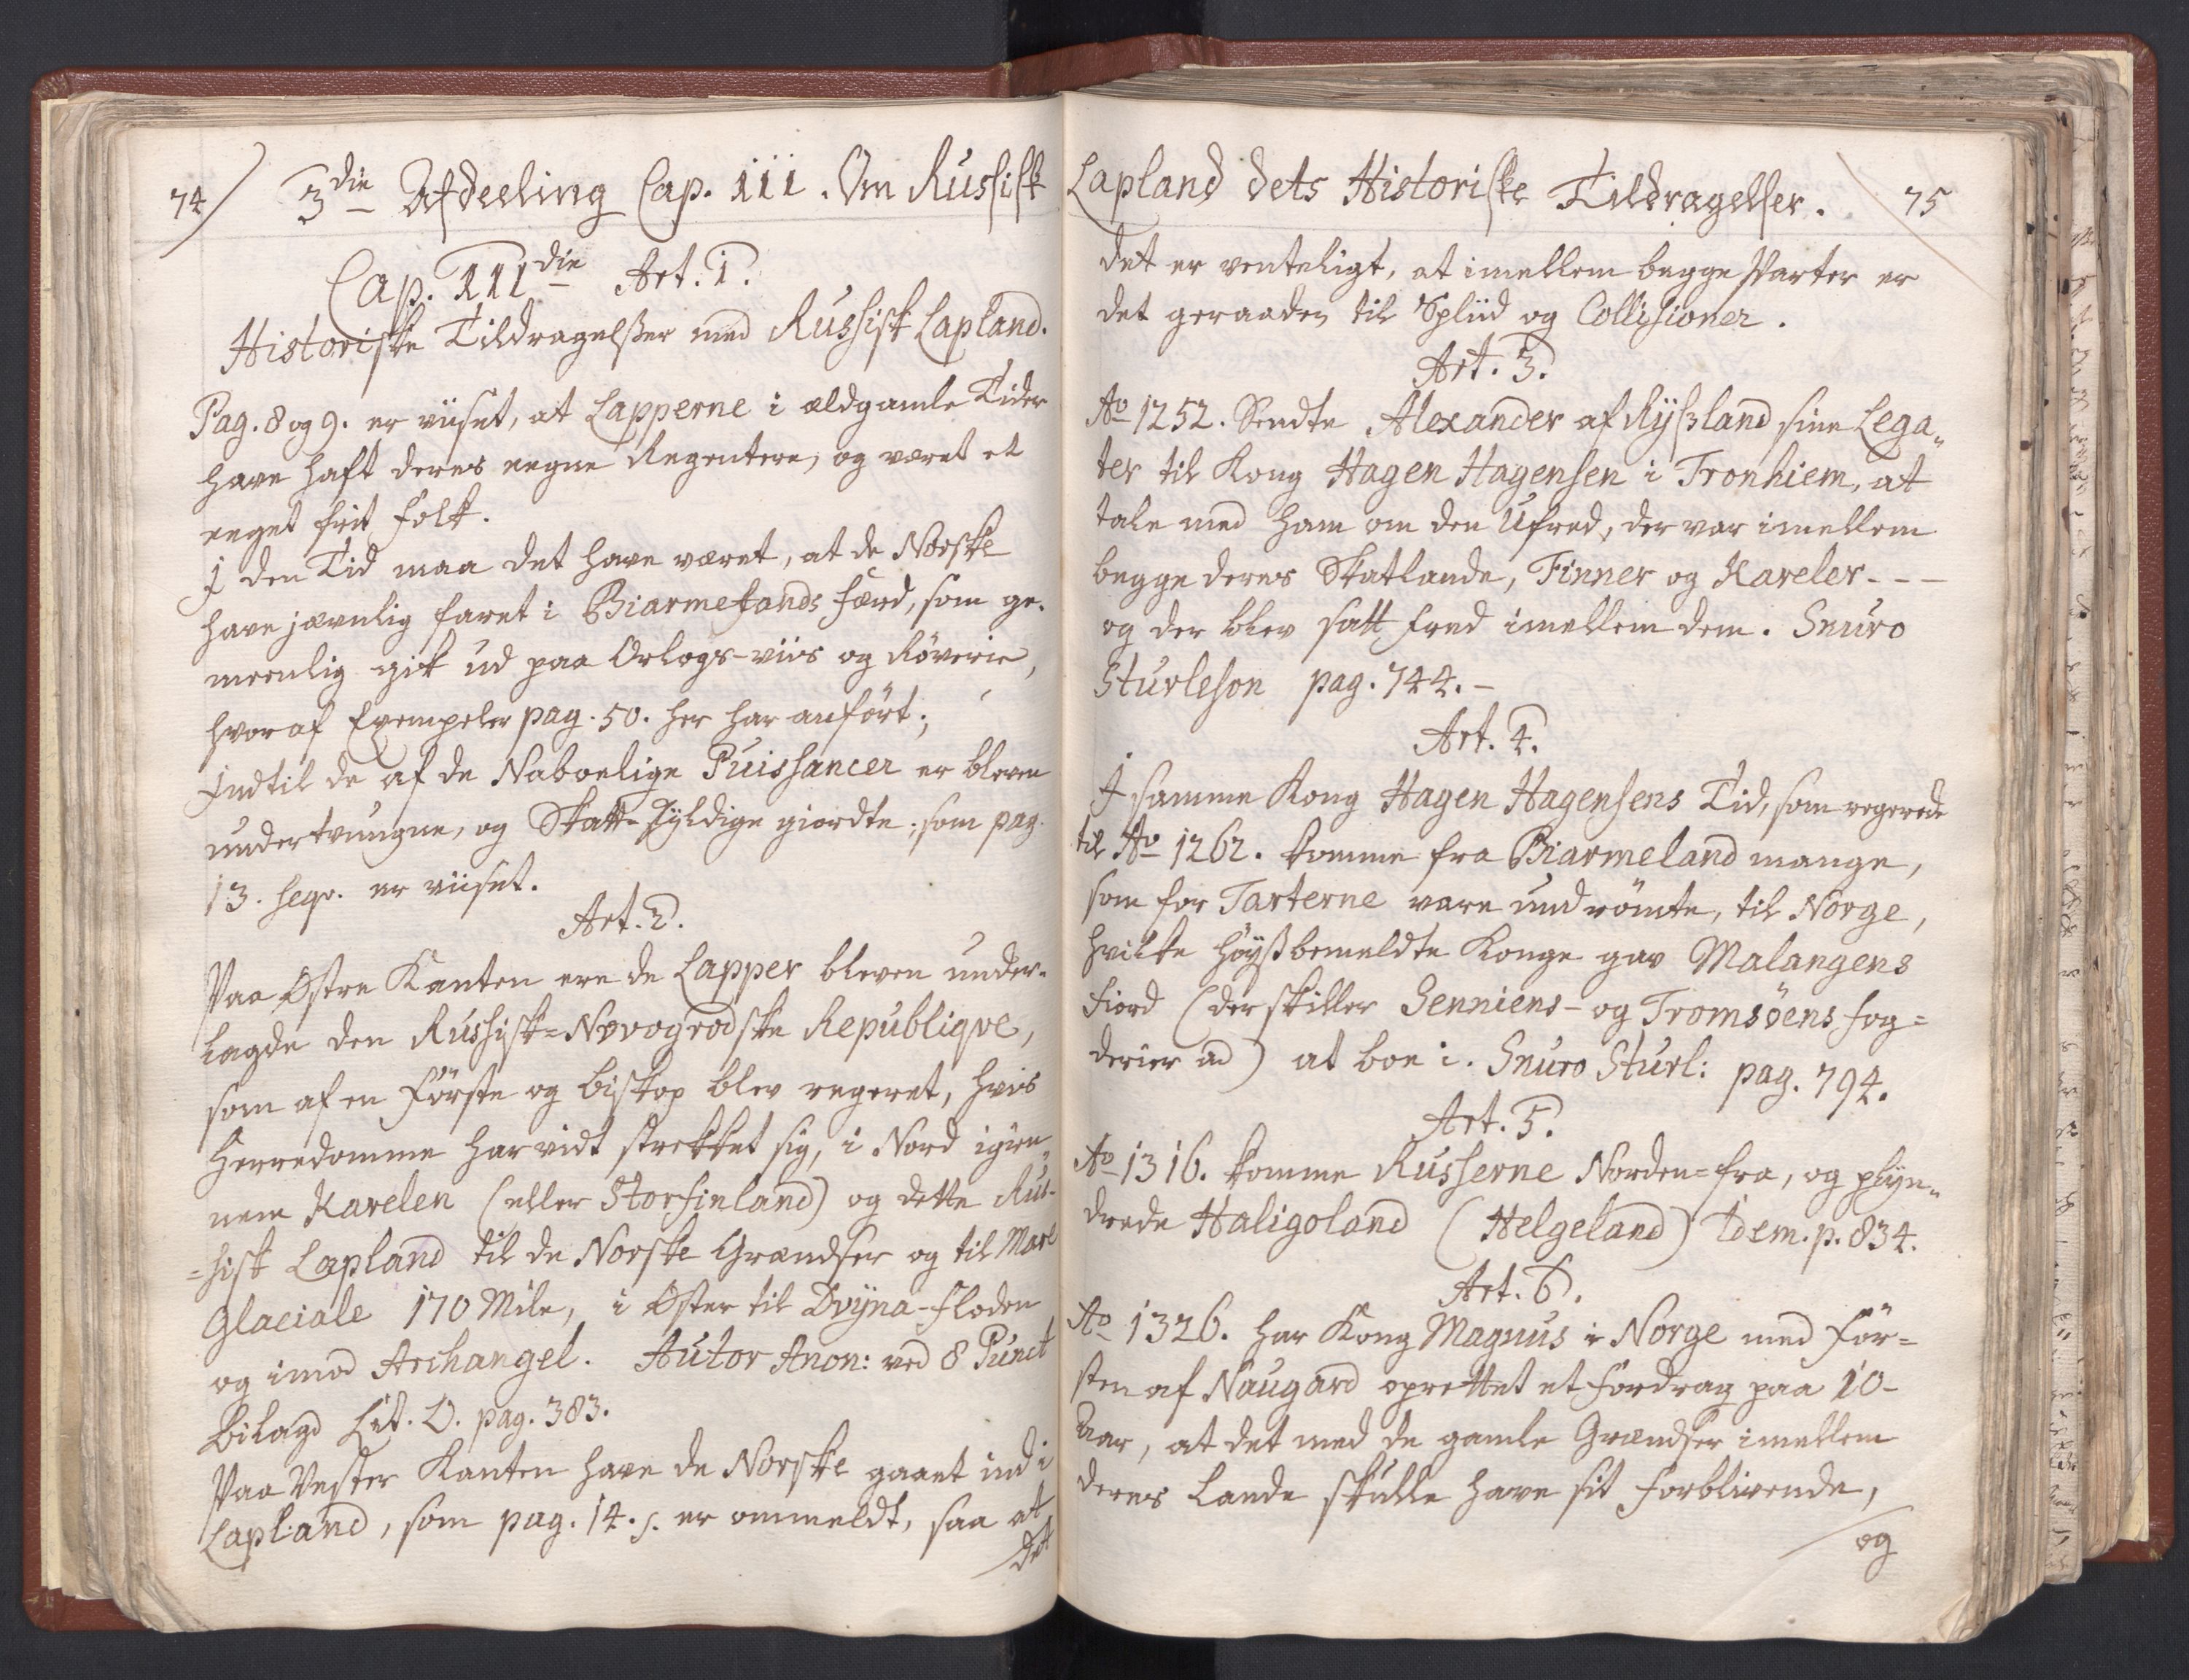 74
3die Afdeeling Cap. III. Om Russisk
Cap. IIIdie Art. 1.
Historiske Tildragelßer med Russisk Lapland.
Pag. 8 og 9. er viiset, at Lapperne i ældgamle Tider
have haft deres eegne Regentere, og været et
eeget frit Folk.
I den Tid maa det have været, at de Norske
have jævnlig faret i Biarmelands færd, som ge-
meenlig gik ud paa Orlogs-viis og Röverie,
hvoraf Exempeler pag. 50. her har anfört;
Indtil de af de Naboelige Puissancer er bleven
undertvungne, og Skatt-skyldige giordte; som pag.
13. seqv. er viiset.
Art. 2.
Paa Østre Kanten ere de Lapper bleven under-
lagde den Russisk-Novogrodske Republiqve,
som af en Förste og Biskop blev regeret, hvis
Herredomme har vidt strekket sig, i Nord igien-
nem Karelen (eller Storfinland) og dette Rus-
=sisk Lapland til de Norske Grændser og til Mare
Glaciale 170 Mile, i Øster til Dvÿna-Floden
og imod Archangel. Autor Anon: ved 8 Punct
Bilagd Lit. D. pag. 383.
Paa Vester Kanten have de Norske gaaet ind i
Lapland, som pag. 14. s. er ommeldt, saa at
det
Lapland dets Historiske Tildragelser.
75
det er venteligt, at imellem begge Parter er
det geraaden til Spliid og Collisioner.
Art. 3.
Ao 1252. Sendte Alexander af Rÿßland sine Lega-
ter til Kong Hagen Hagensen i Tronhiem, at
tale med ham om den Ufred, der var imellem
begge deres Skatlande, Finner og Kareler - - -
og der blev satt fred imellem dem. Snuro
Sturleson pag. 744. -
Art. 4.
I samme Kong Hagen Hagensens Tid, som regerede
til Ao 1262. komme fra Biarmeland mange,
som for Tarterne vare undrömte, til Norge,
hvilke höÿßbemeldte Konge gav Malangens
Fiord (der skiller Senniens- og Tromsöens Fog=
derier ad) at boe i. Snuro Sturl: pag. 794.
Art. 5.
Ao 1316. komme Russerne Norden=fra, og plÿn-
drede Haligoland (Helgeland) Idem. p. 834.
Art. 6.
Ao 1326. har Kong Magnus i Norge med För=
sten af Naugard oprettet et fordrag paa 10-
Aar, at det med de gamle Grændser imellem
deres Lande skulle have sit forblivende,
og